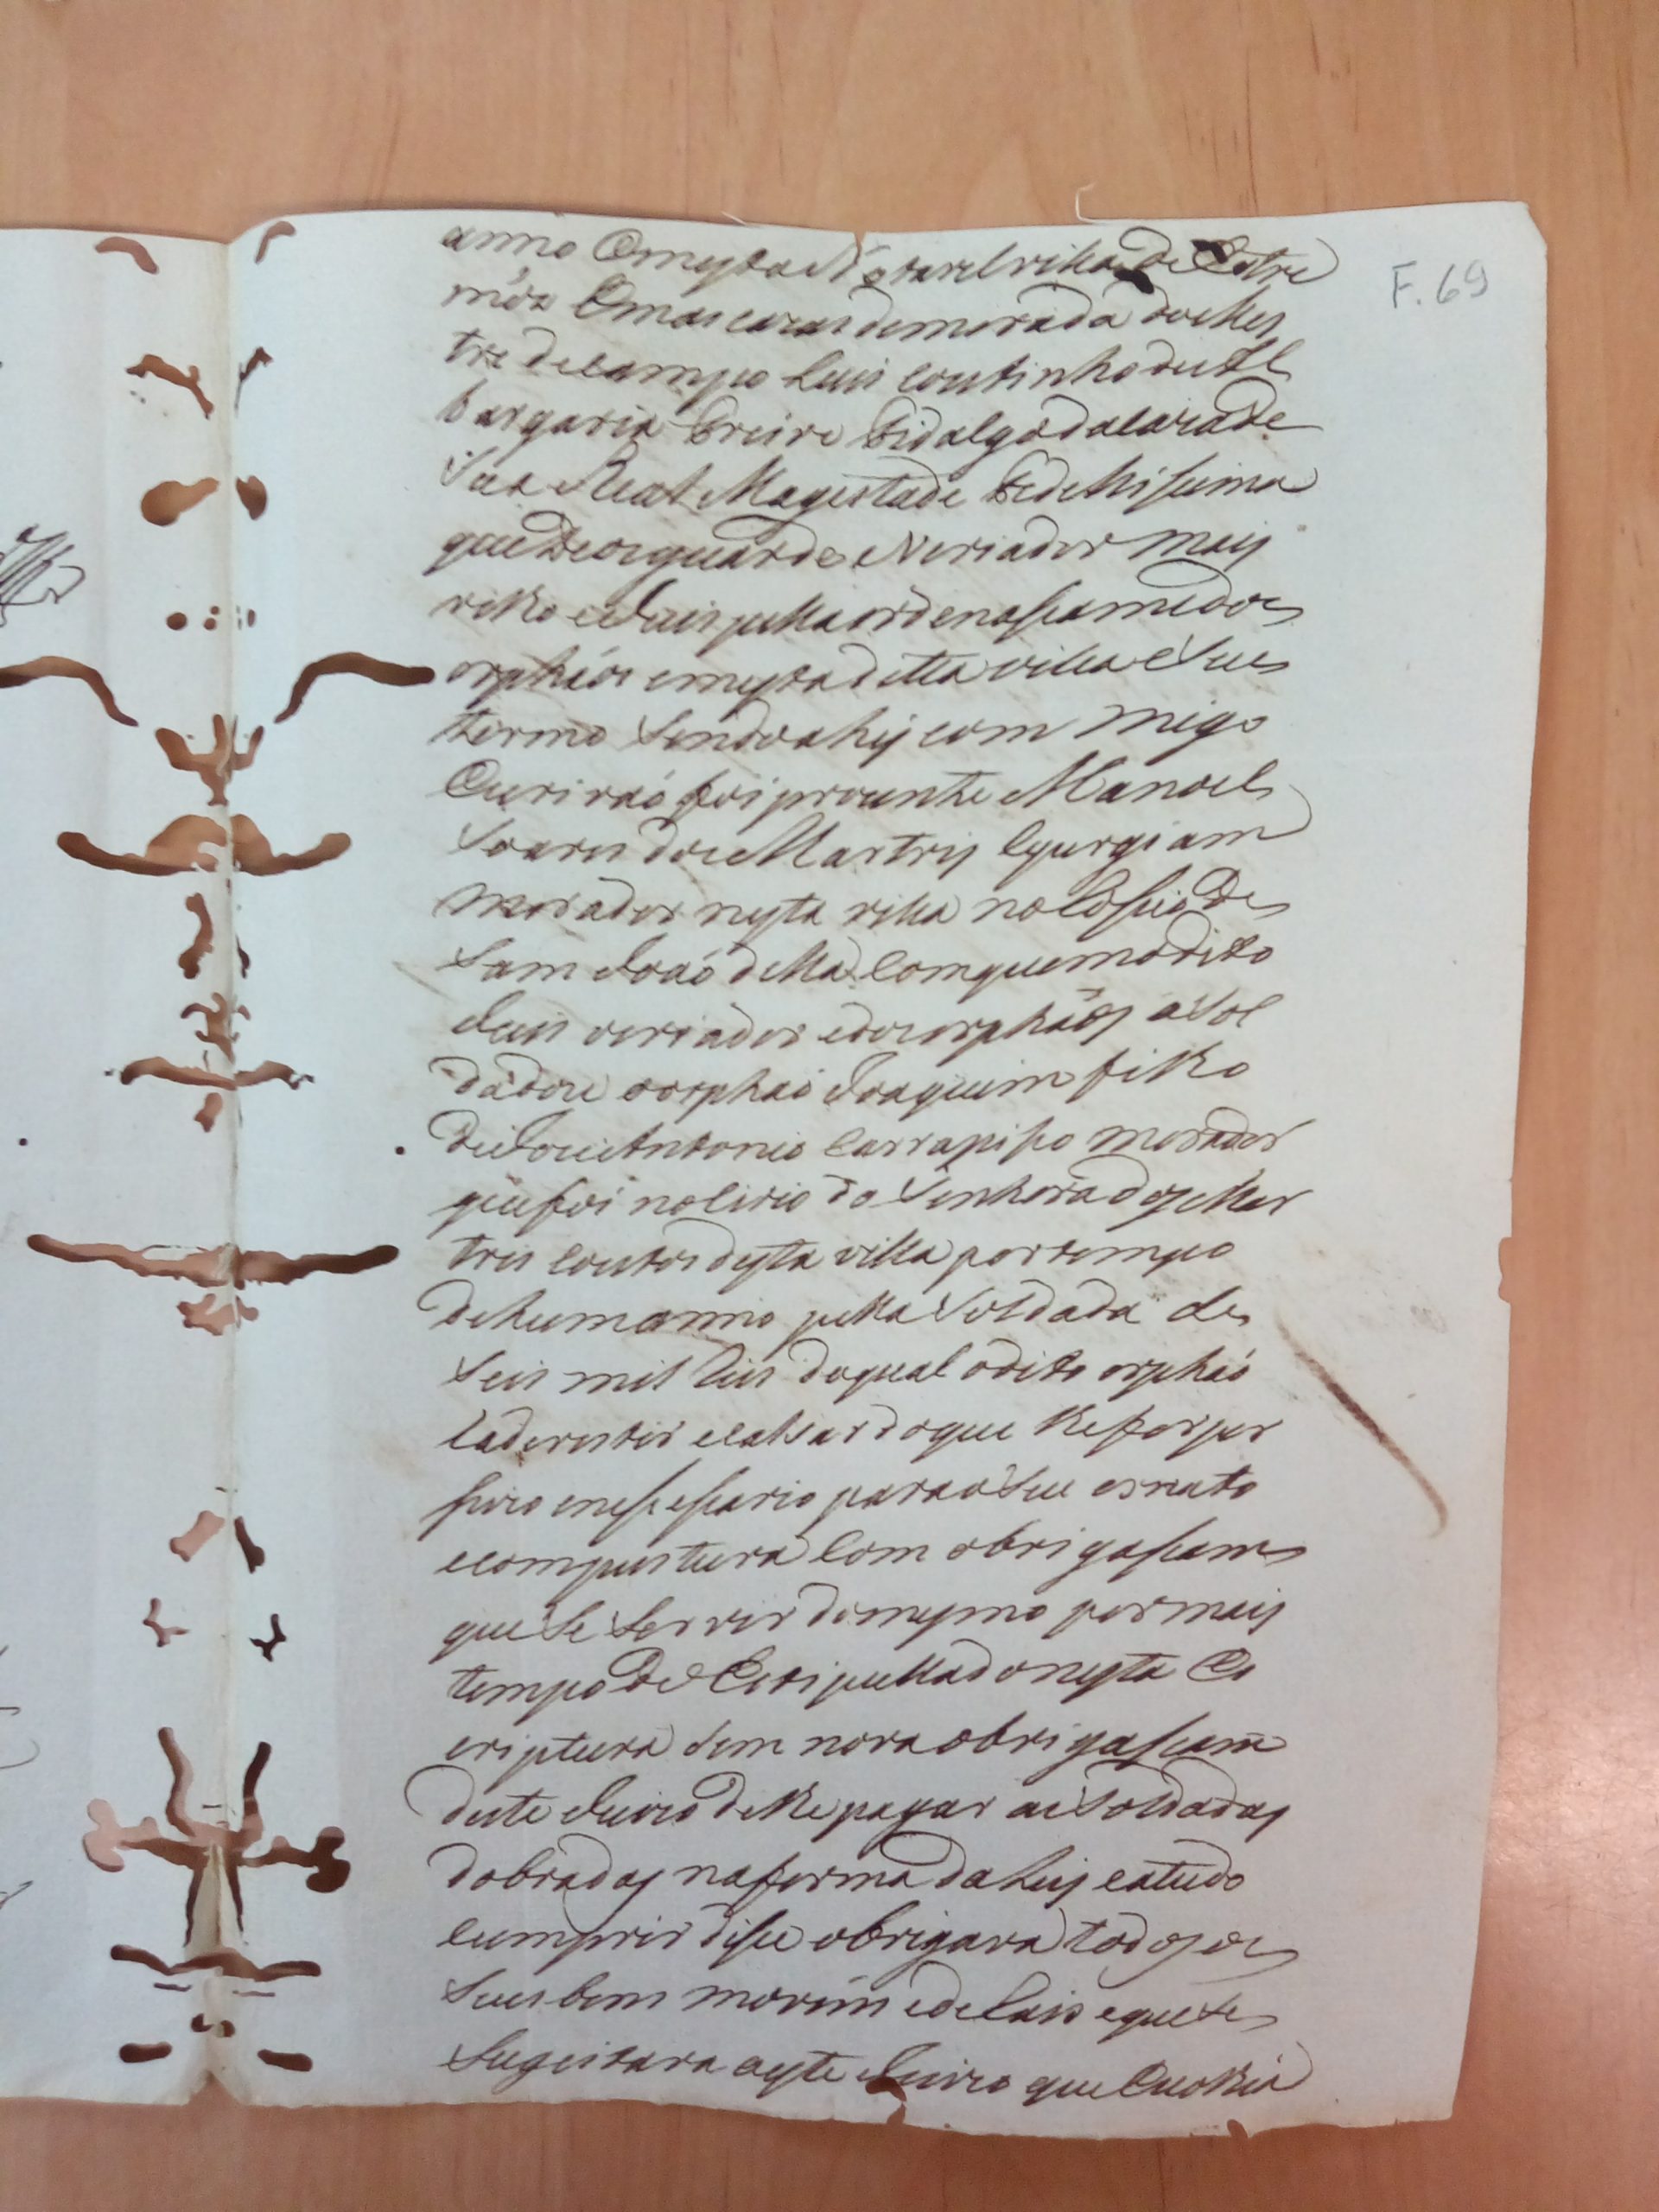 anno Em esta Notavel villa de Estre
môz Em as cazas de morada do Mes
tre de campo Luis Coutinho de Al
bargaria Freire Fidalgo da caza de
Sua Real Magestade Fidellissima
que Deos guarde Veriador mais
velho e Juis pella ordenassam e dos
orphãos em esta ditta villa e Seu
termo Sendo ahy com migo
Escrivaõ foi prezente Manoel
Soares dos Martrys Cyurgiam
morador nesta villa no Rossio de
Sam Joaõ della Com quem o dito
Juis veriador e dos orphãos aSol
dadou o orphaõ Joaquim filho
de Joze Antonio Carrapisso morador
que foi no sitio da Senhora dos Mar
tres Coutos desta villa por tempo
de hum anno pella Soldada de
Seis mil Reis do qual o dito orphaõ
Ca de vestir e calsar do que lhe for per
sizo e nessessario para o Seu ornato
e compustura Com obrigassam
que Se Servir do mesmo por mais
tempo do Estipullado nesta Es
criptura Sem nova obrigassam
deste Juizo de lhe pagar as Soldadas
dobradas na forma da Ley e a tudo
cumprir disse obrigava todos os
Seus bens moveis e de Rais e que Se
Sugeitava a este Juizo que Escolhia
F. 69